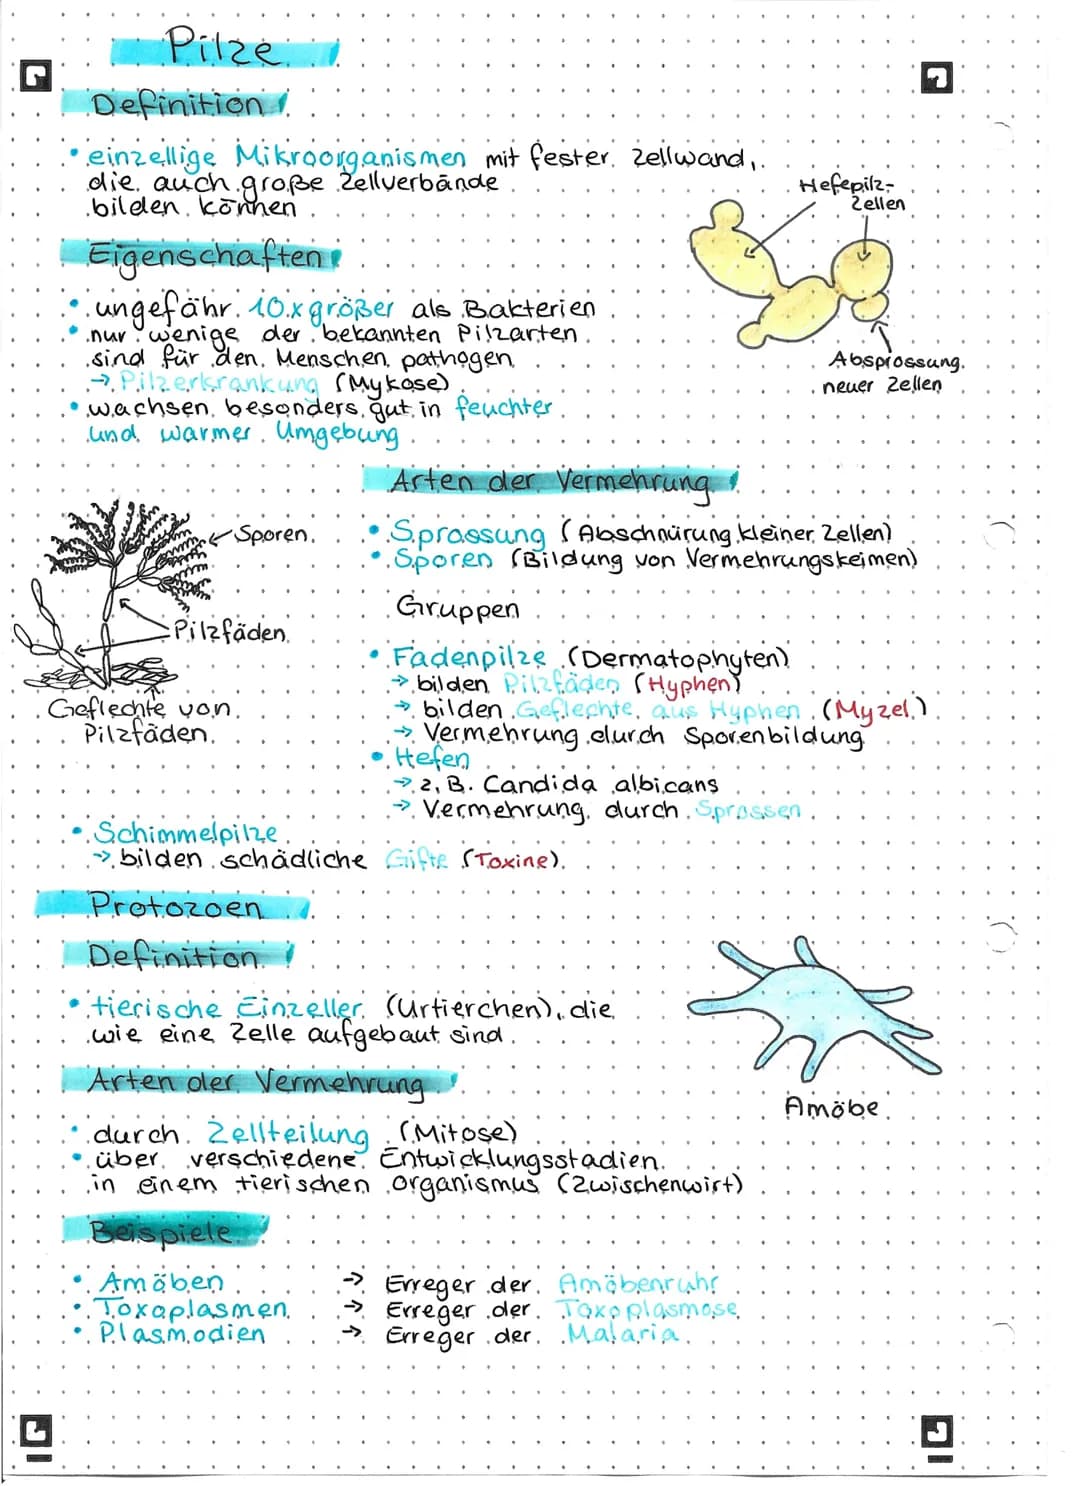 Pilze
Definition
• einzellige Mikroorganismen mit fester Zellwand,
die auch große Zellverbände
bilden können
Hefepilz-
Zellen
Eigenschaften
• ungefähr 10x größer als Bakterien
• nur wenige der bekannten Pilzarten
sind für den Menschen pathogen
→ Pilzerkrankung (Mykose)
• wachsen besonders gut in feuchter
und warmer Umgebung
Absprossung
neuer Zellen
Arten der Vermehrung
• Sprossung (Abschnürung kleiner Zellen)
• Sporen (Bildung von Vermehrungskeimen)
Sporen
Pilzfäden
Geflechte von
Pilzfäden
Gruppen
• Fadenpilze (Dermatophyten)
→ bilden Pilzfäden (Hyphen)
→ bilden Geflechte aus Hyphen (Myzel)
→ Vermehrung durch Sporenbildung
• Hefen
→ z. B. Candida albicans
→ Vermehrung durch Sprossen
• Schimmelpilze
→ bilden schädliche Gifte (Toxine)
Protozoen
Definition
• tierische Einzeller (Urtierchen), die
wie eine Zelle aufgebaut sind
Amöbe
Arten der Vermehrung
• durch Zellteilung (Mitose)
• über verschiedene Entwicklungsstadien
in einem tierischen organismus (Zwischenwirt)
Beispiele
• Amöben → Erreger der Amöbenruhr
• Toxoplasmen → Erreger der Toxoplasmose
• Plasmodien → Erreger der Malaria